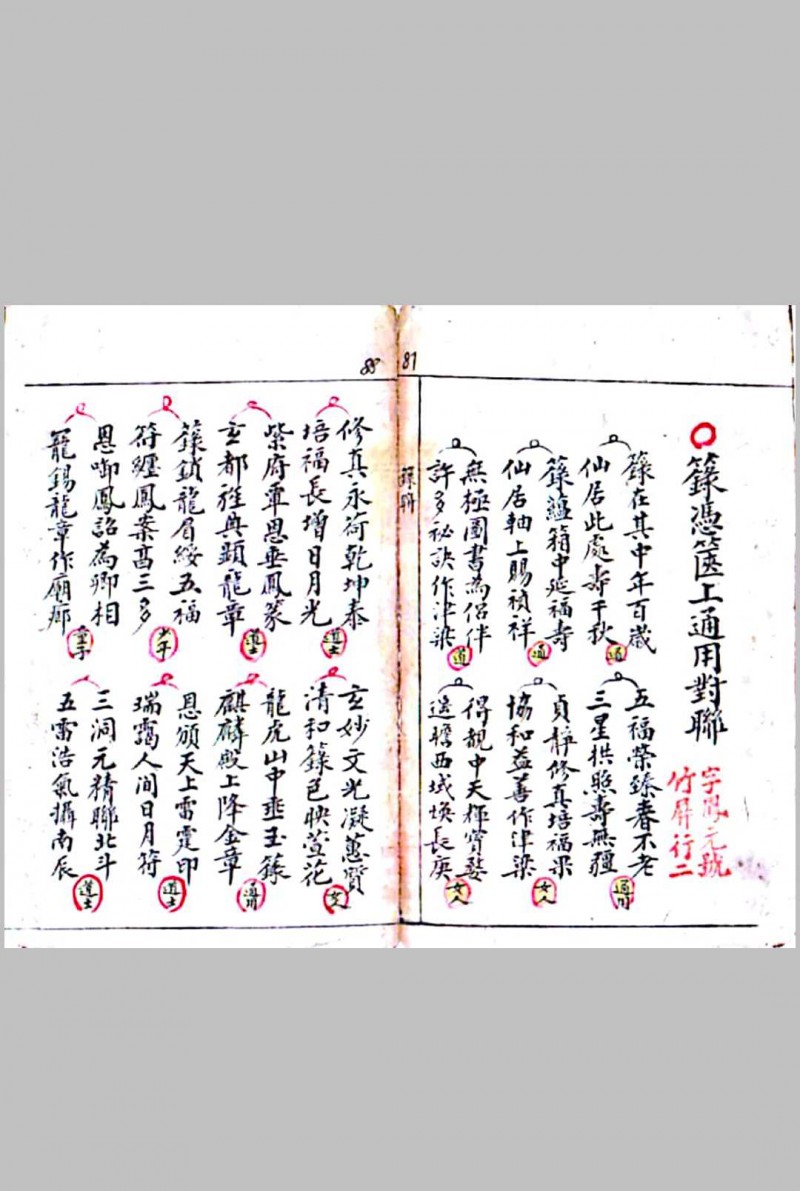 87
籙憑篋上通用對聯
竹屏行二
籙在其中年百歲
仙居此處壽千秋
通
籙蘊箱中延福壽
仙居軸上賜禎祥
通
無極圖書為侶伴
許多秘訣作津梁
道
五福榮臻春不老
三星拱照壽無疆
通用
貞靜修真培福果
協和益善作津梁
女人
得親中天輝寶婺
遙瞻西域煥長庚
女人
88
修真永荷乾坤泰
培福長增日月光
道士
紫府覃恩垂鳳篆
玄都雅典顕龍章
道士
籙鎖龍眉綏五福
符纏鳳案高三多
恩啣鳳詔為卿相
寵錫龍章作廟廊
童子
玄妙文光凝蕙質
清和籙色映萱花
女人
龍虎山中垂玉籙
麒麟殿上降金章
通用
恩頒天上雷霆印
瑞靄人間日月符
道士
三洞元精聯北斗
五雷浩氣攝南辰
道士